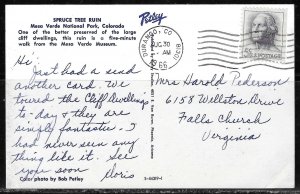 SPRUCE TREE RUIN
Mesa Verde National Park, Colorado
One of the better preserved of the large
cliff dwellings, this ruin is a five-minute
walk from the Mesa Verde Museum.
Petley
DURANGO, CO
81301
AUG 30
AM
66
U.S. POSTAGE
Hi
Just had a send
another card. We
toured the Cliff Dwellings
to-day & they are
simply fantastic. I
had never seen any
thing like it. See
you soon
Doris
Mrs Harold Pederson
6158 Willston Drive
Falls Church
Virginia
Color photo by Bob Petley